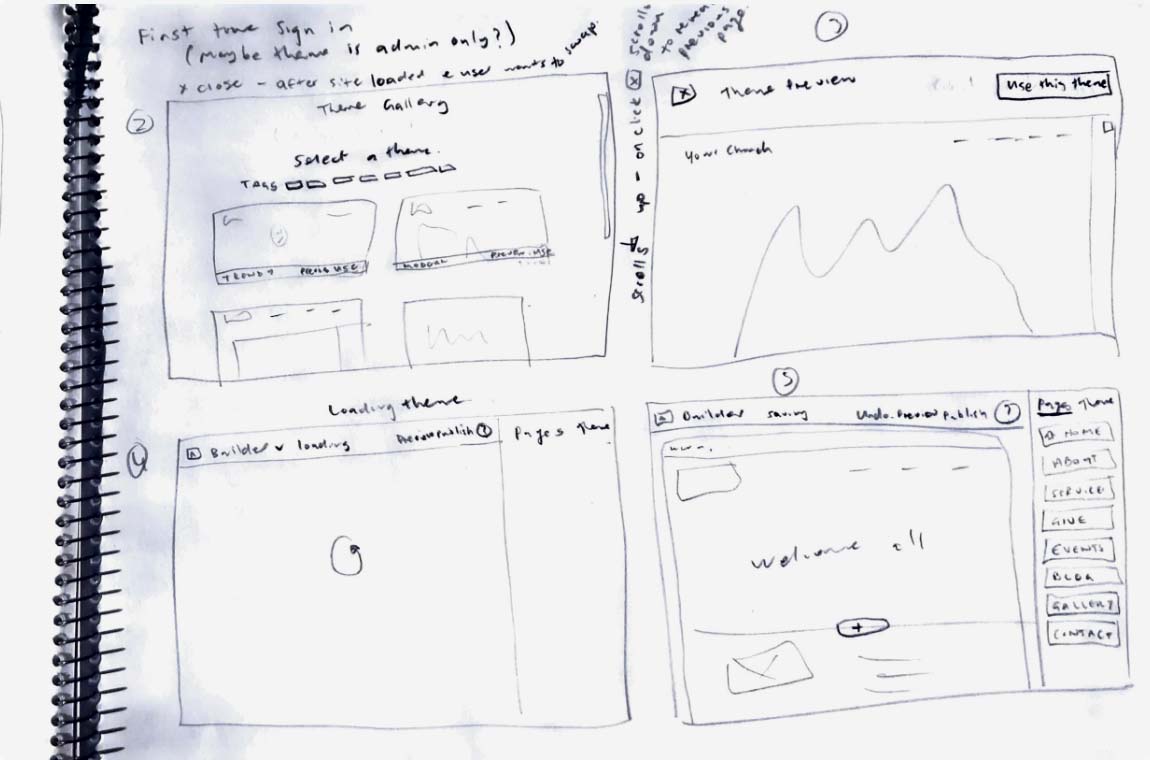 First time Sign in
(Maybe theme is admin only?)
x close - after site loaded & user wants to swap.
2
Theme Gallery
Select a theme.
TAGS
TRENDY
USE
MODERN
PREVIEW USE
Scrolls
down
to reveal
previous
page.
Scrolls up - on click x
x Theme Preview
Use this theme
Your Church
Loading theme
4
Builder loading
Preview publish ?
Pages Theme
5
Builder saving
Undo Preview publish ?
Pages Theme
HOME
ABOUT
SERVICE
GIVE
EVENTS
BLOG
GALLERY
CONTACT
Welcome all
+